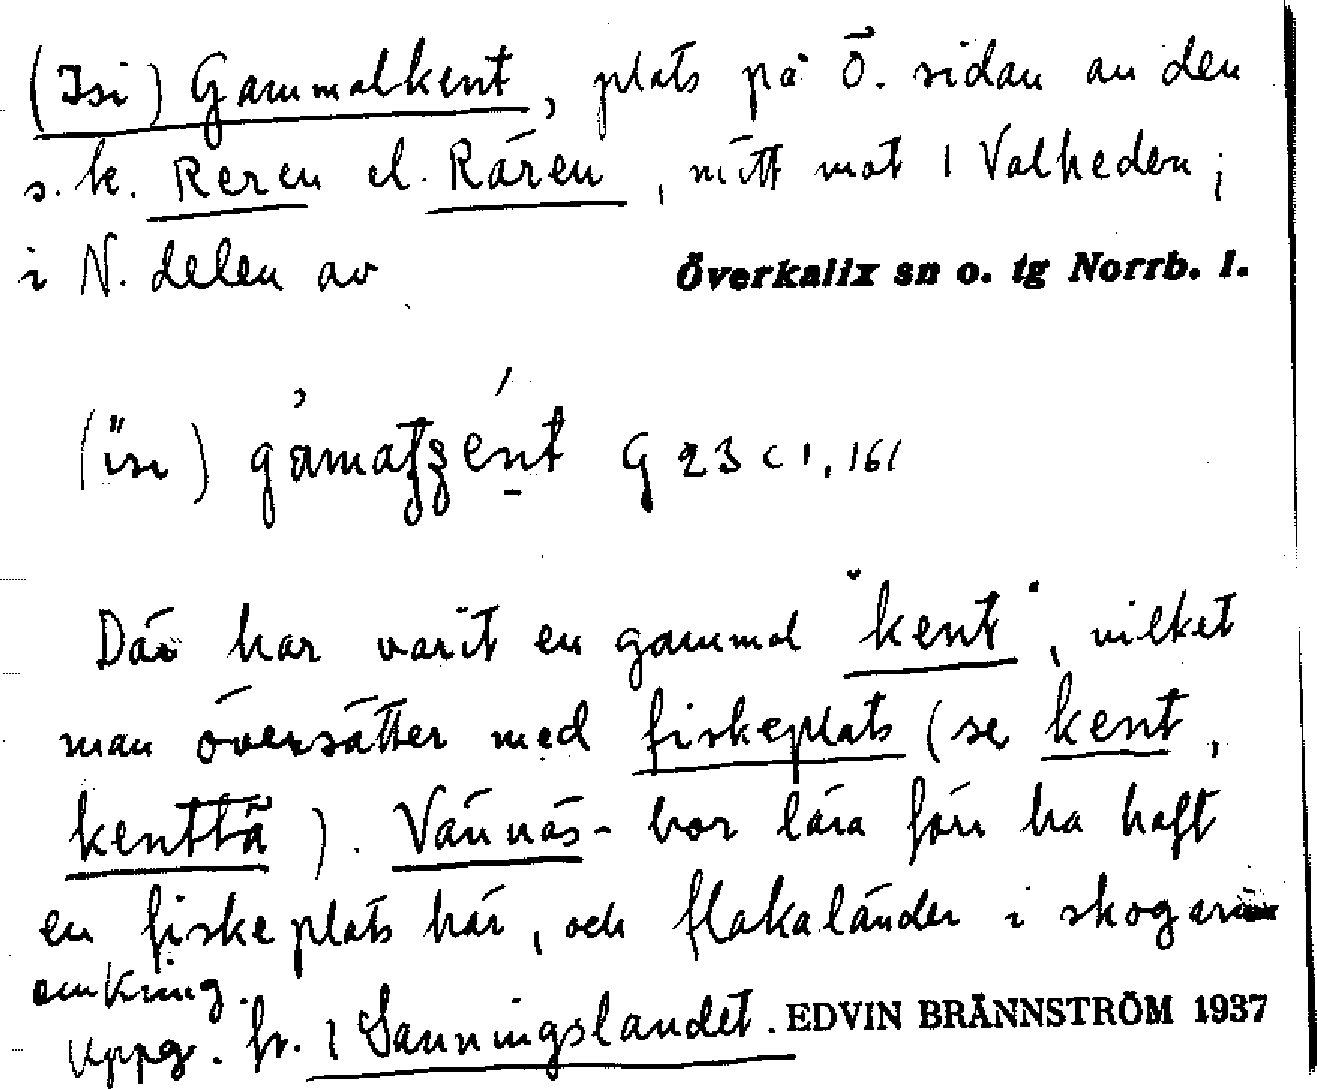 (Isi) Gammalkent, plats på Ö. sidan av den
s.k. Reren el. Rären, mitt mot 1 Valheden;
i N. delen av Överkalix sn o. tg Norrb. l.
(isi) G 23 c 1, 161
Där har varit en gammal "kent", vilket
man översätter med fiskeplats (se kent,
kenttä). Vännäs-bor lära förr ha haft
en fiskeplats här, och flakaländer i skogarna
omkring.
Uppg. fr. 1 Sanningslandet. EDVIN BRÄNNSTRÖM 1937